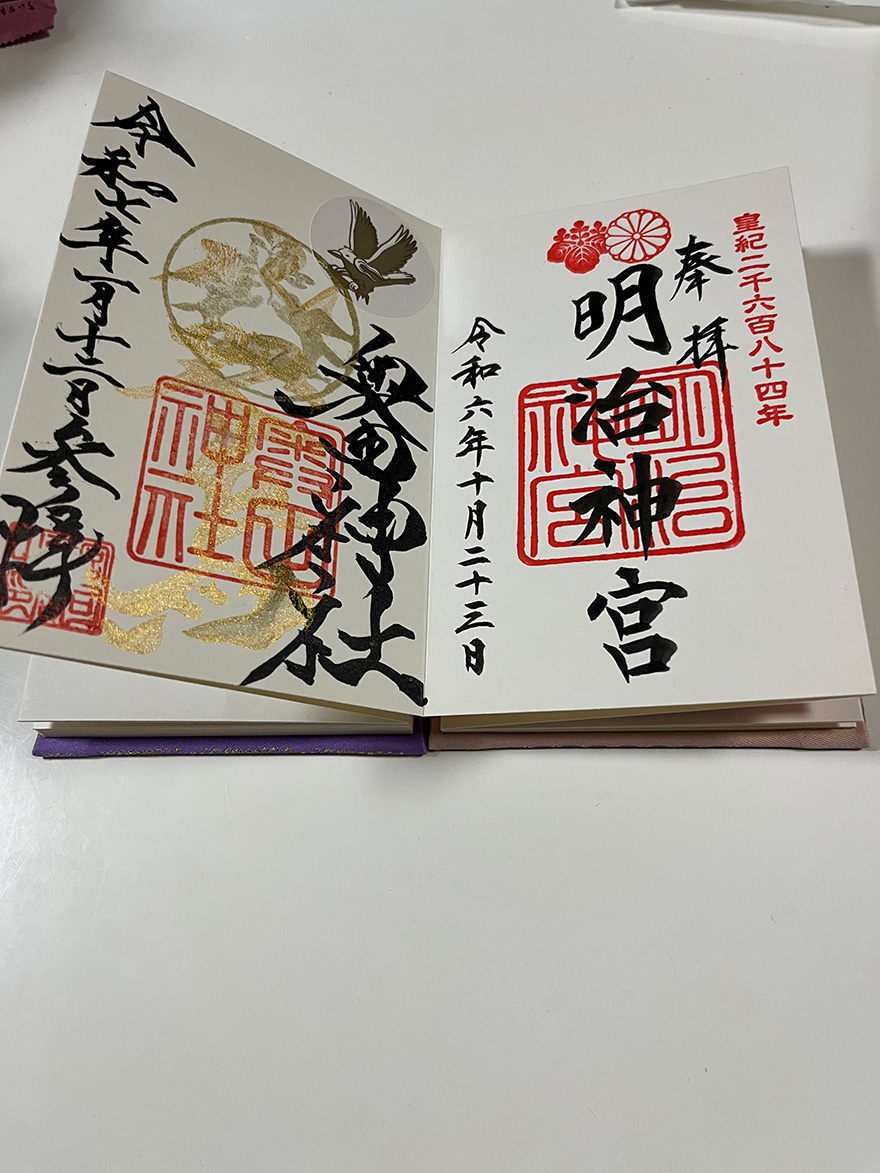 皇紀二千六百八十四年
奉拝
明治神宮
明治神宮
令和六年十月二十三日
神社
神社
令和七年一月十三日参